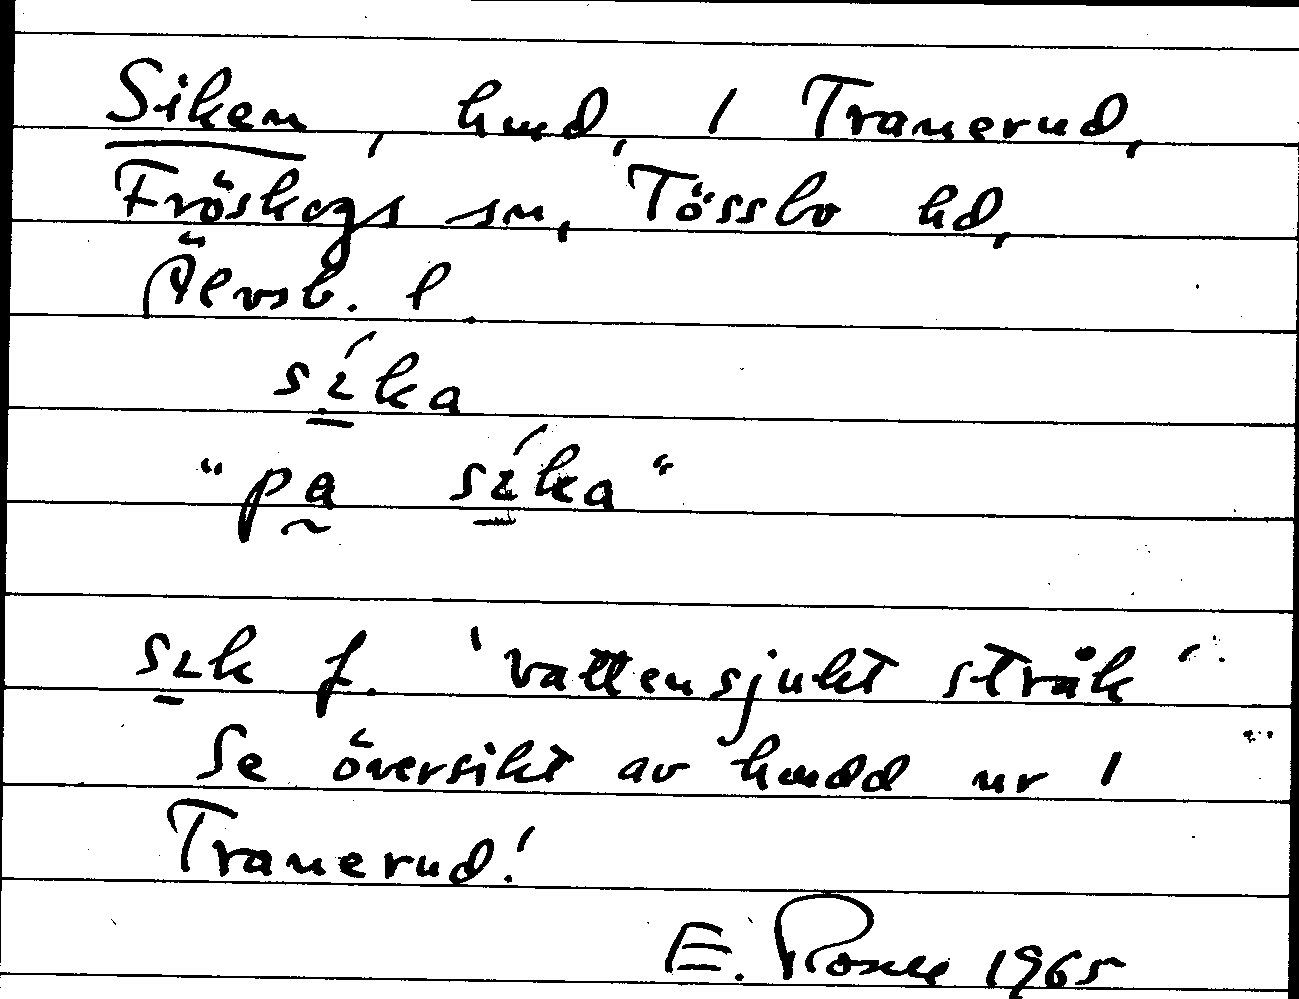 Siken, hmd, 1 Tranerud,
Fröskogs sn, Tössbo hd,
Älvsb. l.
síka
"pa síka"
sik f. 'vattensjukt stråk'
Se översikt av hmdd nr 1
Tranerud!
E. 1965